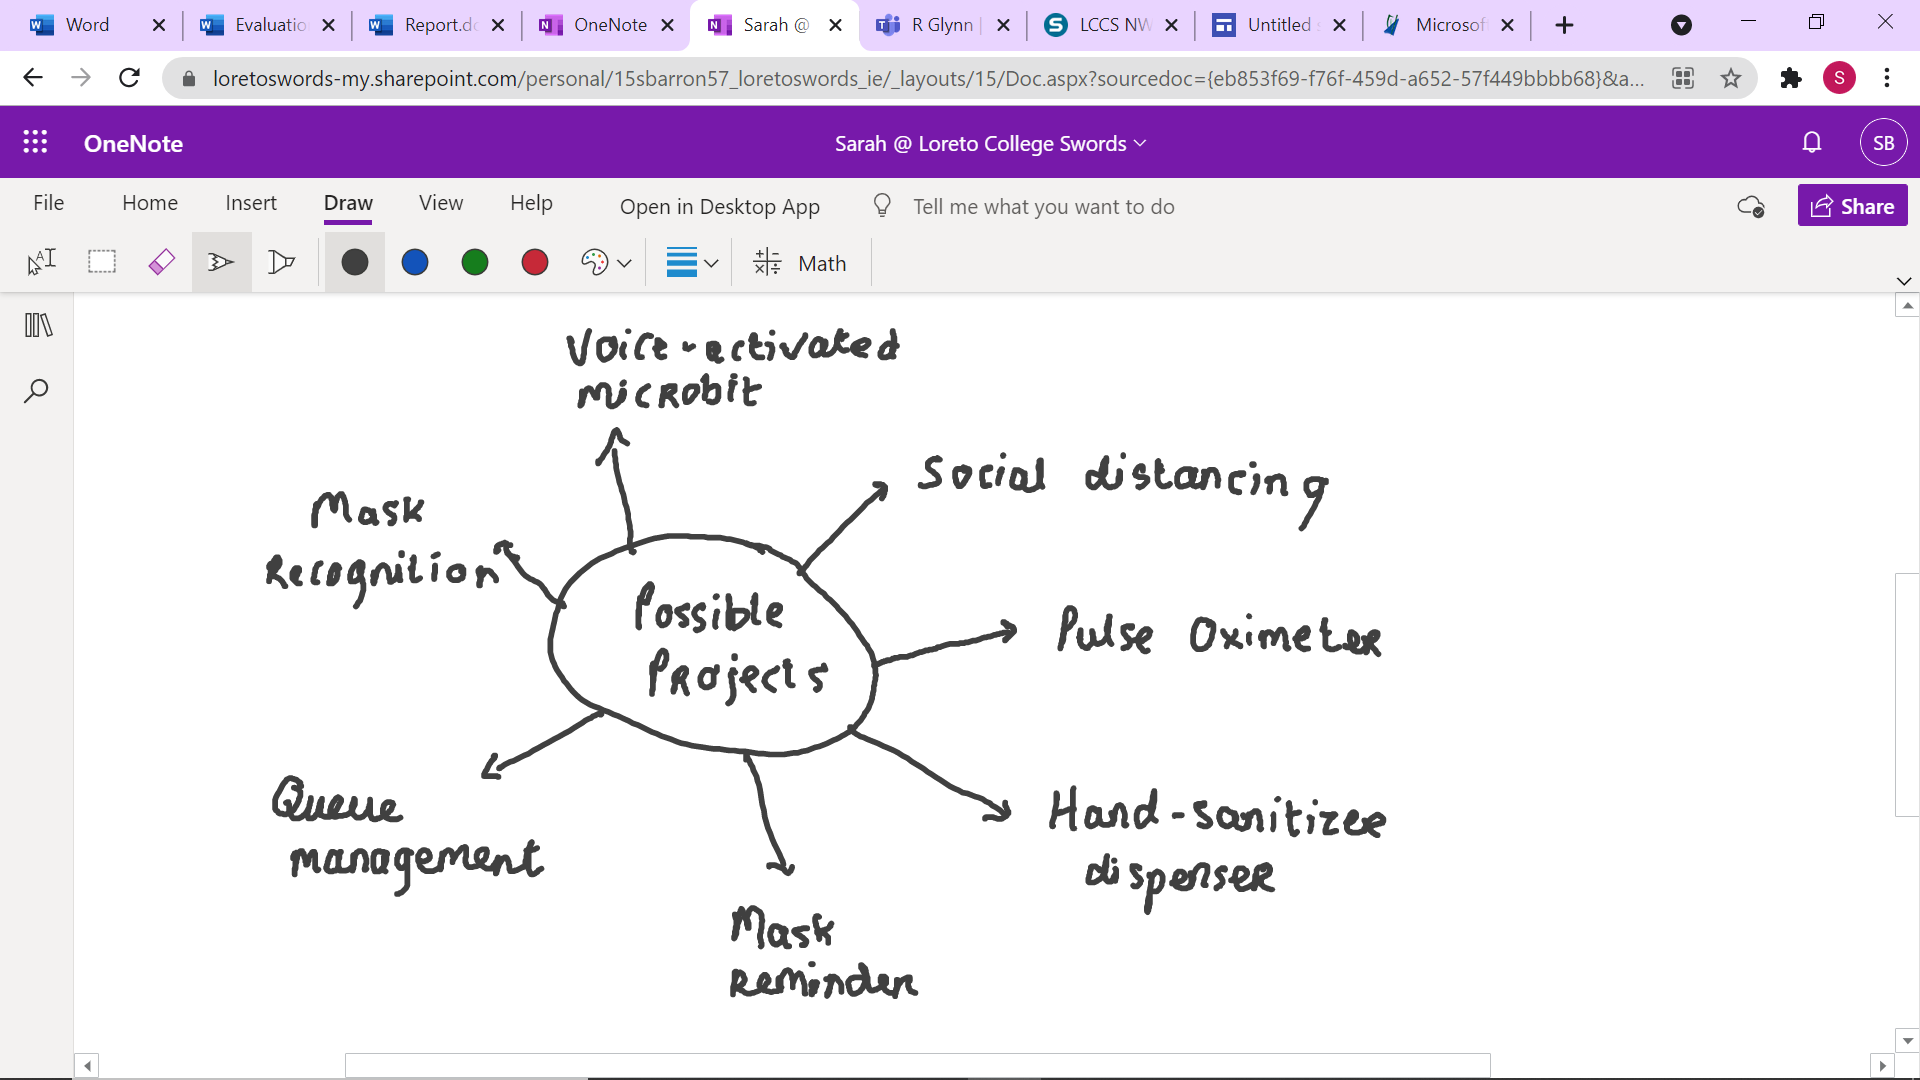 Word
Evaluatio
Report.do
OneNote
Sarah @
R Glynn |
LCCS NW
Untitled
Microsof
loretoswords-my.sharepoint.com/personal/15sbarron57_loretoswords_ie/_layouts/15/Doc.aspx?sourcedoc={eb853f69-f76f-459d-a652-57f449bbbb68}&a...
S
OneNote
Sarah @ Loreto College Swords
SB
File Home Insert Draw View Help Open in Desktop App Tell me what you want to do
Share
Math
Voice-activated
microbit
Social distancing
Mask
Recognition
Possible
Projects
Pulse Oximeter
Queue
management
Hand-sanitizer
dispenser
Mask
Reminder